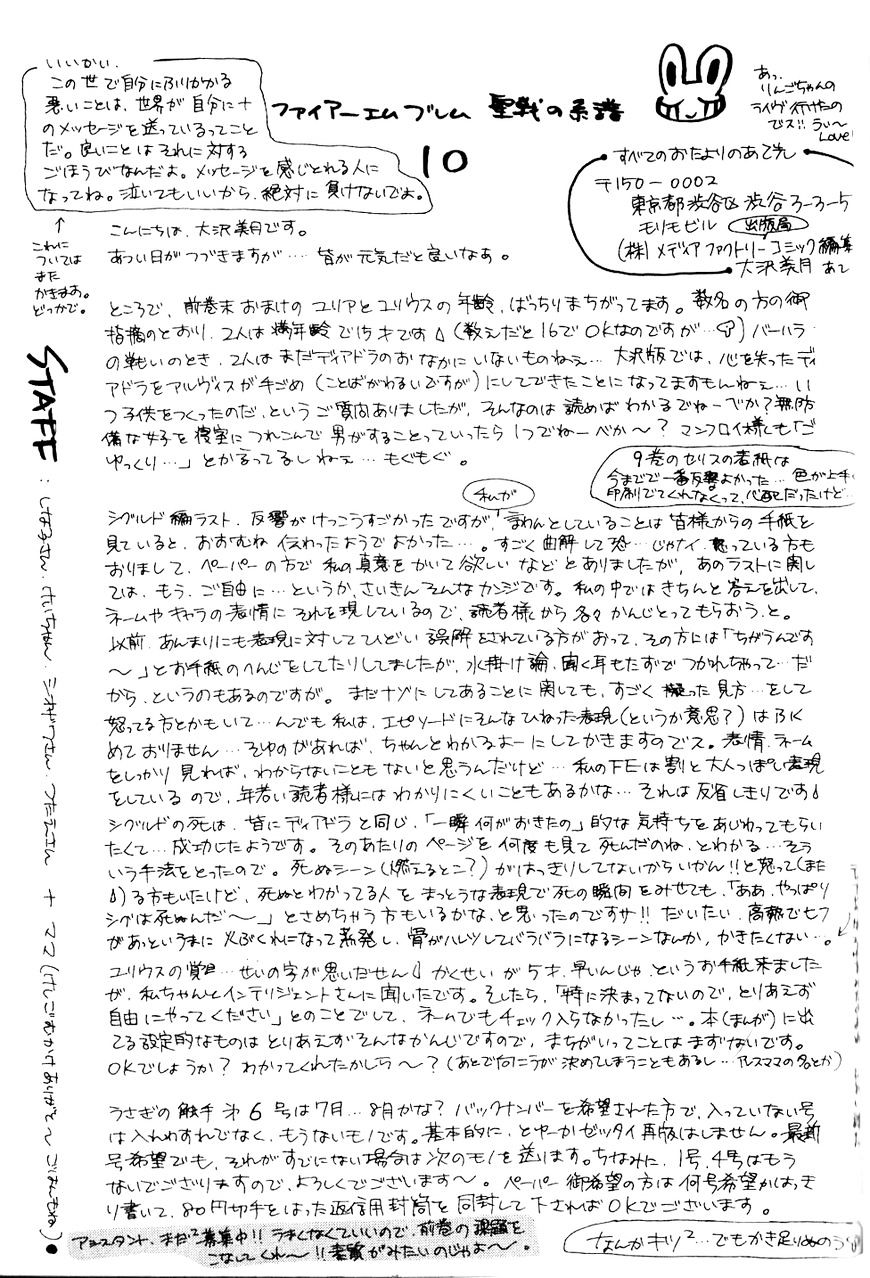 いいかい、
この世で自分にふりかかる
悪いことは、世界が自分に十
のメッセージを送っているってこと
だ。良いことはそれに対する
ごほうびなんだよ。メッセージを感じとれる人に
なってね。泣いてもいいから、絶対に負けないでよ。
↑
これに
ついては
また
かきますね。
どっかで。
ファイアーエムブレム 聖戦の系譜
10
あっ、
りんごちゃんの
ライヴ行けたの
でス!! うぃ〜
Love
すべてのおたよりのあて先
〒150-0002
東京都渋谷区渋谷3-3-5
モリモビル 出版局
(株)メディアファクトリーコミック編集
大沢美月 あて
こんにちは、大沢美月です。
あつい日がつづきますが…皆が元気だと良いなあ。
ところで、前巻末おまけのユリアとユリウスの年齢、ばっちりまちがってます。数名の方の御
指摘のとおり、2人は満年齢で15才です (数えだと16でOKなのですが…) バーハラ
の戦いのとき、2人はまだディアドラのおなかにいないものねぇ…大沢版では、心を失ったディ
アドラをアルヴィスが手ごめ(ことばがわるいですが)にしてできたことになってますもんねぇ…い
つ子供をつくったのだ、というご質問ありましたが、そんなのは読めばわかるでねーべか?無防
備な女子を寝室につれこんで男がすることっていったら1つでねーべか〜?マンフロイ様も「ご
ゆっくり…」とかゆってるしねぇ…もぐもぐ。
9巻のセリスの表紙は
今までで一番反響よかった…色が上手
印刷でてくれなくって、心配だったけど…
私が
シグルド編ラスト、反響がけっこうすごかったですが、言わんとしていることは皆様からの手紙を
見ていると、おおむね伝わったようでよかった…。すごく曲解して恐…じゃナイ、怒っている方も
おりまして、ペーパーの方で私の真意をかいて欲しいなどとありましたが、あのラストに関し
ては、もう、ご自由に…というか、さいきんそんなカンジです。私の中ではきちんと答えを出して、
ネームやキャラの表情にそれを現しているので、読者様から各々かんじとってもらおう、と。
以前、あんまりにも表現に対してひどい誤解をされている方がおって、その方には「ちがうんです
〜」とお手紙のへんじをしてたりしてましたが、水掛け論、聞く耳もたずでつかれちゃって…だ
から、というのもあるのですが。まだナゾにしてあることに関しても、すごく凝った見方…をして
怒ってる方とかもいて…んでも私は、エピソードにそんなひねった表現(というか意思?)はふく
めておりません…そゆのがあれば、ちゃんとわかるよーにしてかきますのでス。表情、ネーム
をしっかり見れば、わからないこともないと思うんだけど…私のFEは割と大人っぽい表現
をしているので、年若い読者様にはわかりにくいこともあるかな…それは反省しきりです
シグルドの死は、皆にディアドラと同じ、「一瞬何がおきたの」的な気持ちをあじわってもらい
たくて…成功したようです。そのあたりのページを何度も見て死んだのね、とわかる…そう
いう手法をとったので。死ぬシーン(燃えるとこ?)がはっきりしてないからいかん!!と怒って(また
)る方もいたけど、死ぬとわかってる人をまっとうな表現で死の瞬間をみせても、「ああ、やっぱり
シグは死ぬんだ〜」とさめちゃう方もいるかな、と思ったのですサ!! だいたい、高熱でヒフ
があっというまに火ぶくれになって蒸発し、骨がハレツしてバラバラになるシーンなんか、かきたくない…。
ユリウスの覚醒…せいの字が思いだせん かくせいが5才、早いんじゃ、というお手紙来ました
が、私ちゃんとインテリジェントさんに聞いたです。そしたら、「特に決まってないので、とりあえず
自由にやってください」とのことでして、ネームでもチェック入らなかったし…。本(まんが)に出
てる設定的なものはとりあえずそんなかんじですので、まちがいってことはまずないです。
OKでしょうか?わかってくれたかしら〜?(あとで向こうが決めてしまうこともあるし…アルスママの名とか)
うさぎの触手 オ6号は7月…8月かな?バックナンバーを希望された方で、入っていない号
は入れわすれでなく、もうないモノです。基本的に、とゆーかゼッタイ再版はしません。最新
号希望でも、それがすでにない場合は次のモノを送ります。ちなみに、1号、4号はもう
ないでございますので、よろしくでございます〜。ペーパー御希望の方は何号希望かはっき
り書いて、80円切手をはった返信用封筒を同封して下さればOKでございます。
アシスタント、まだ2募集中!! うまくなくていいので、前巻の課題を
こなしてくれ〜!! 素質がみたいのじゃよ〜。
なんかキツ2…でもかき足りぬのう
STAFF : しなるさん、けいちゃん、
つたえさん + ママ(けしごむかけありがと〜ごはんもね)